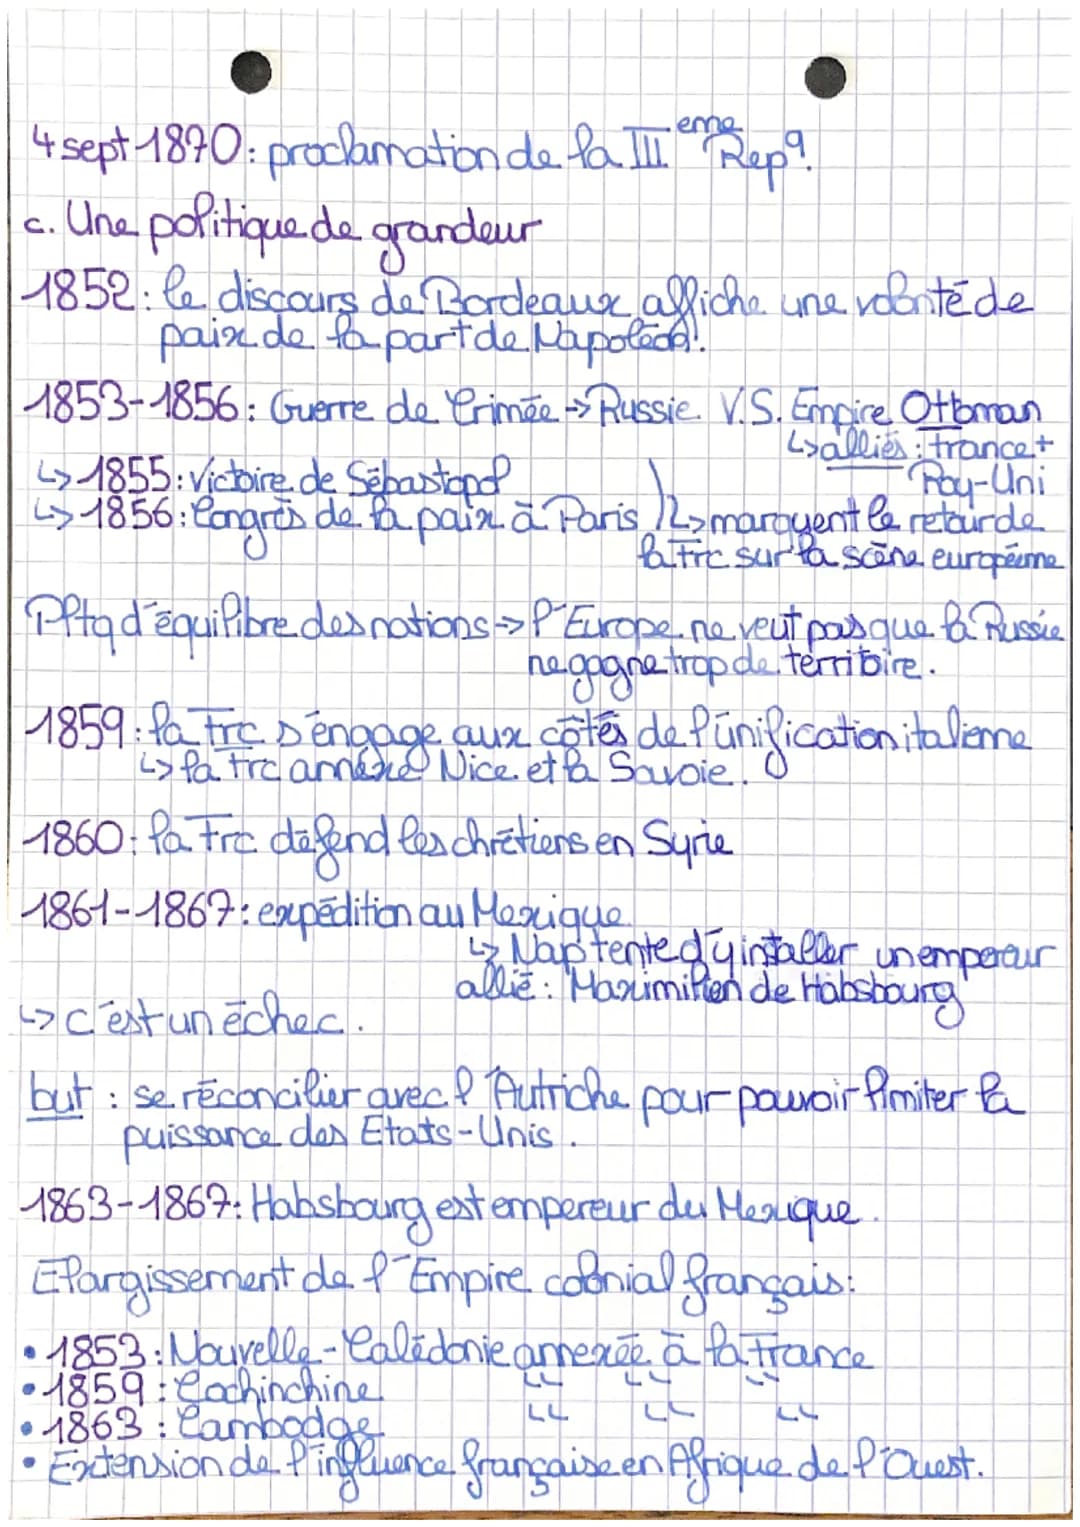 4 sept 1870: proclamation de la III eme Rep°.
c. Une politique de grandeur
1852: le discours de Bordeaux affiche une volonté de
paix de la part de Napoléon.
1853-1856: Guerre de Crimée -> Russie V.S. Empire Ottoman
↳ alliés : France +
Roy-Uni
↳ 1855: victoire de Sébastopol
↳ 1856: Congrès de la paix à Paris ↳ marquent le retour de
la Frc sur la scène européenne
Pltq d'équilibre des nations -> l'Europe ne veut pas que la Russie
ne gagne trop de territoire.
1859: la Frc s'engage aux côtés de l'unification italienne
↳ la Frc annexe Nice et la Savoie.
1860: la Frc défend les chrétiens en Syrie
1861-1867: expédition au Mexique
↳ Nap tente d'y installer un empereur
allié : Maximilien de Habsbourg
↳ c'est un échec.
but : se réconcilier avec l'Autriche pour pouvoir limiter la
puissance des Etats-Unis.
1863-1867: Habsbourg est empereur du Mexique.
Elargissement de l'Empire colonial français:
• 1853: Nouvelle-Calédonie annexée à la France
• 1859: Cochinchine " " "
• 1863: Cambodge " " "
• Extension de l'influence française en Afrique de l'Ouest.